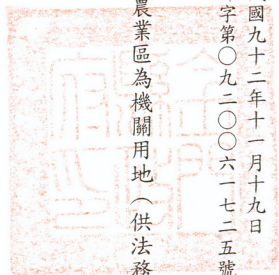 國九十二年十一月十九日
字第〇九二〇〇六一七二五號
農業區為機關用地（供法務